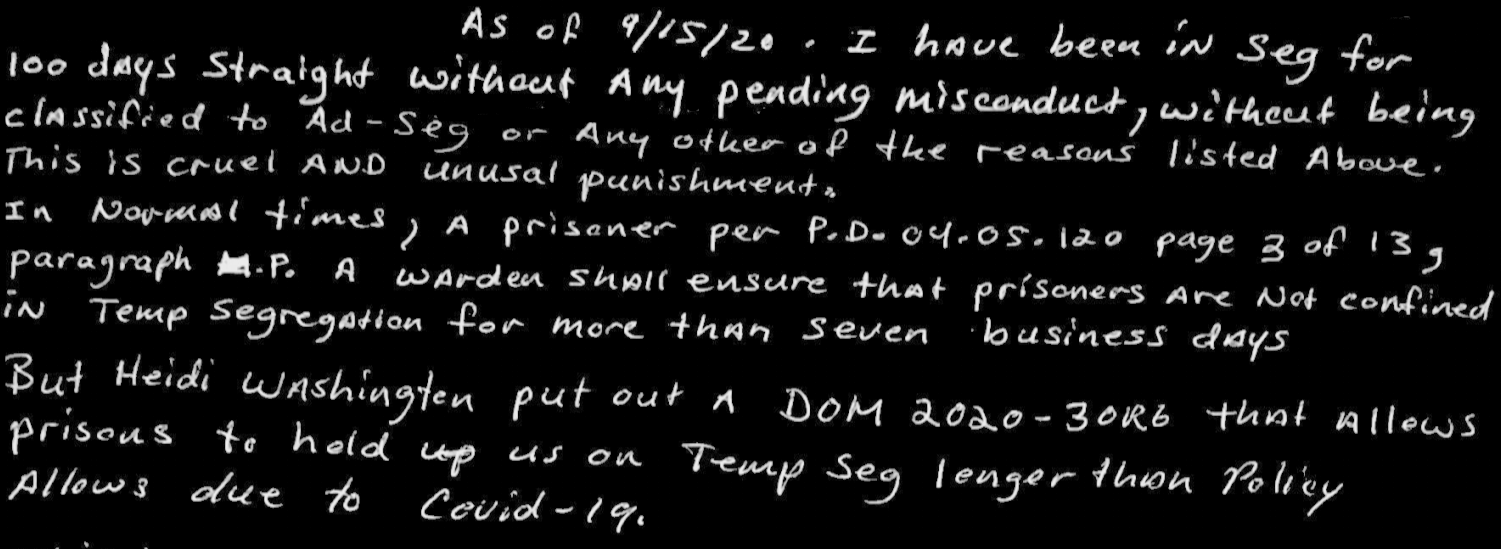 As of 9/15/20. I have been in Seg for
100 days Straight without Any pending misconduct, without being
classified to Ad-Seg or Any other of the reasons listed Above.
This is cruel AND unusal punishment.
In Normal times, A prisoner per P.D. 04.05.120 page 3 of 13,
paragraph P. A warden shall ensure that prisoners Are Not confined
in Temp Segregation for more than seven business days
But Heidi Washington put out A DOM 2020-30R6 that Allows
prisons to hold up us on Temp Seg longer than Policy
Allows due to Covid-19.